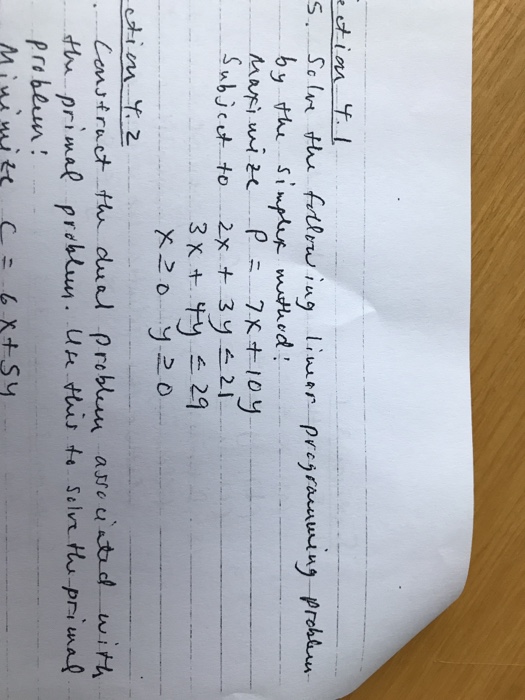 ection 4.1
5. Solve the following linear programming problem
by the simplex method:
Maximize P = 7x + 10y
Subject to 2x + 3y ≤ 21
3x + 4y ≤ 29
x ≥ 0 y ≥ 0
ction 4.2
. Construct the dual problem associated with
the primal problem. Use this to solve the primal
problem:
Minimize C = 6x + 5y